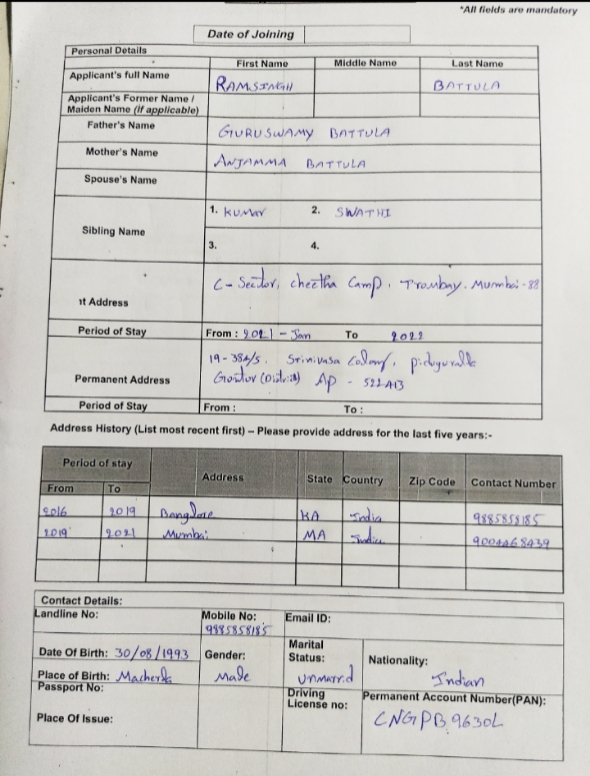 *All fields are mandatory
Date of Joining
Personal Details
First Name Middle Name Last Name
Applicant's full Name RAMSINGH BATTULA
Applicant's Former Name /
Maiden Name (if applicable)
Father's Name GURUSWAMY BATTULA
Mother's Name ANJAMMA BATTULA
Spouse's Name
1. KUMAR 2. SWATHI
Sibling Name
3. 4.
C- Sector, cheetha Camp, Trombay. Mumbai-88
nt Address
Period of Stay From : 2021 - Jan To 2022
19-384/5, Srinivasa Colony, piduguralla
Permanent Address Guntur (District) AP - 522413
Period of Stay From : To :
Address History (List most recent first) – Please provide address for the last five years:-
Period of stay Address State Country Zip Code Contact Number
From To
2016 2019 Banglore KA India 9885858185
2019 2021 Mumbai MA India 9004468439
Contact Details:
Landline No: Mobile No: Email ID:
9885858185
Date Of Birth: 30/08/1993 Gender: Marital Status: Nationality:
Place of Birth: Macherla Male unmarrid Indian
Passport No: Driving License no: Permanent Account Number(PAN):
Place Of Issue: CNGPB9630L